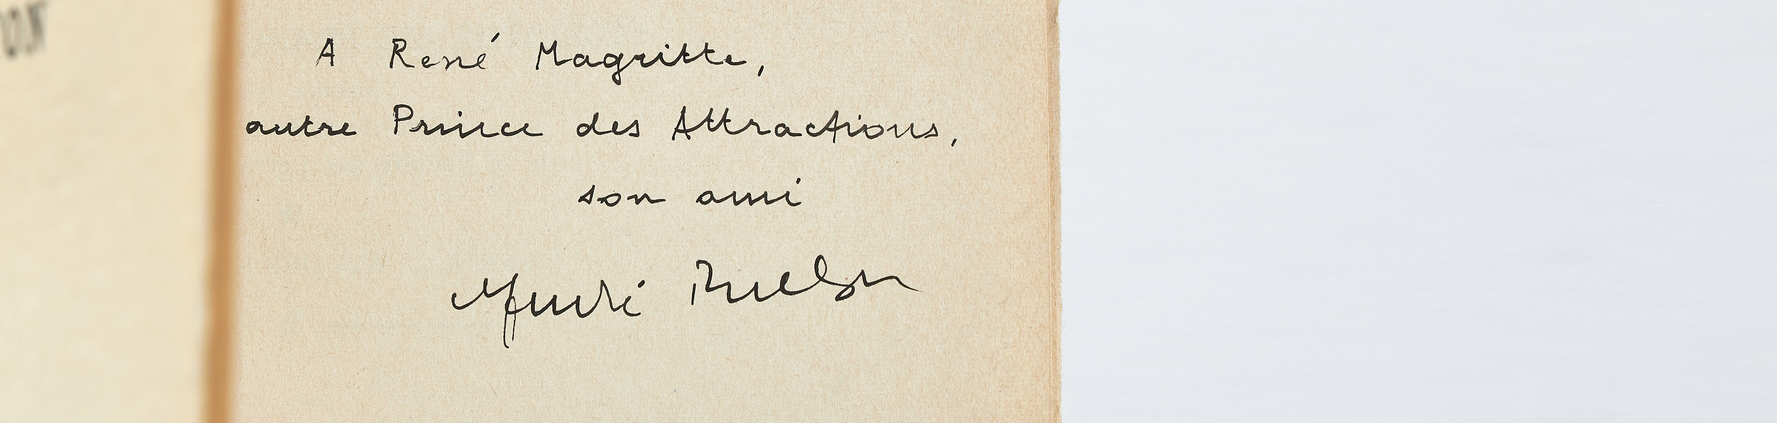 A René Magritte,
autre Prince des Attractions,
son ami